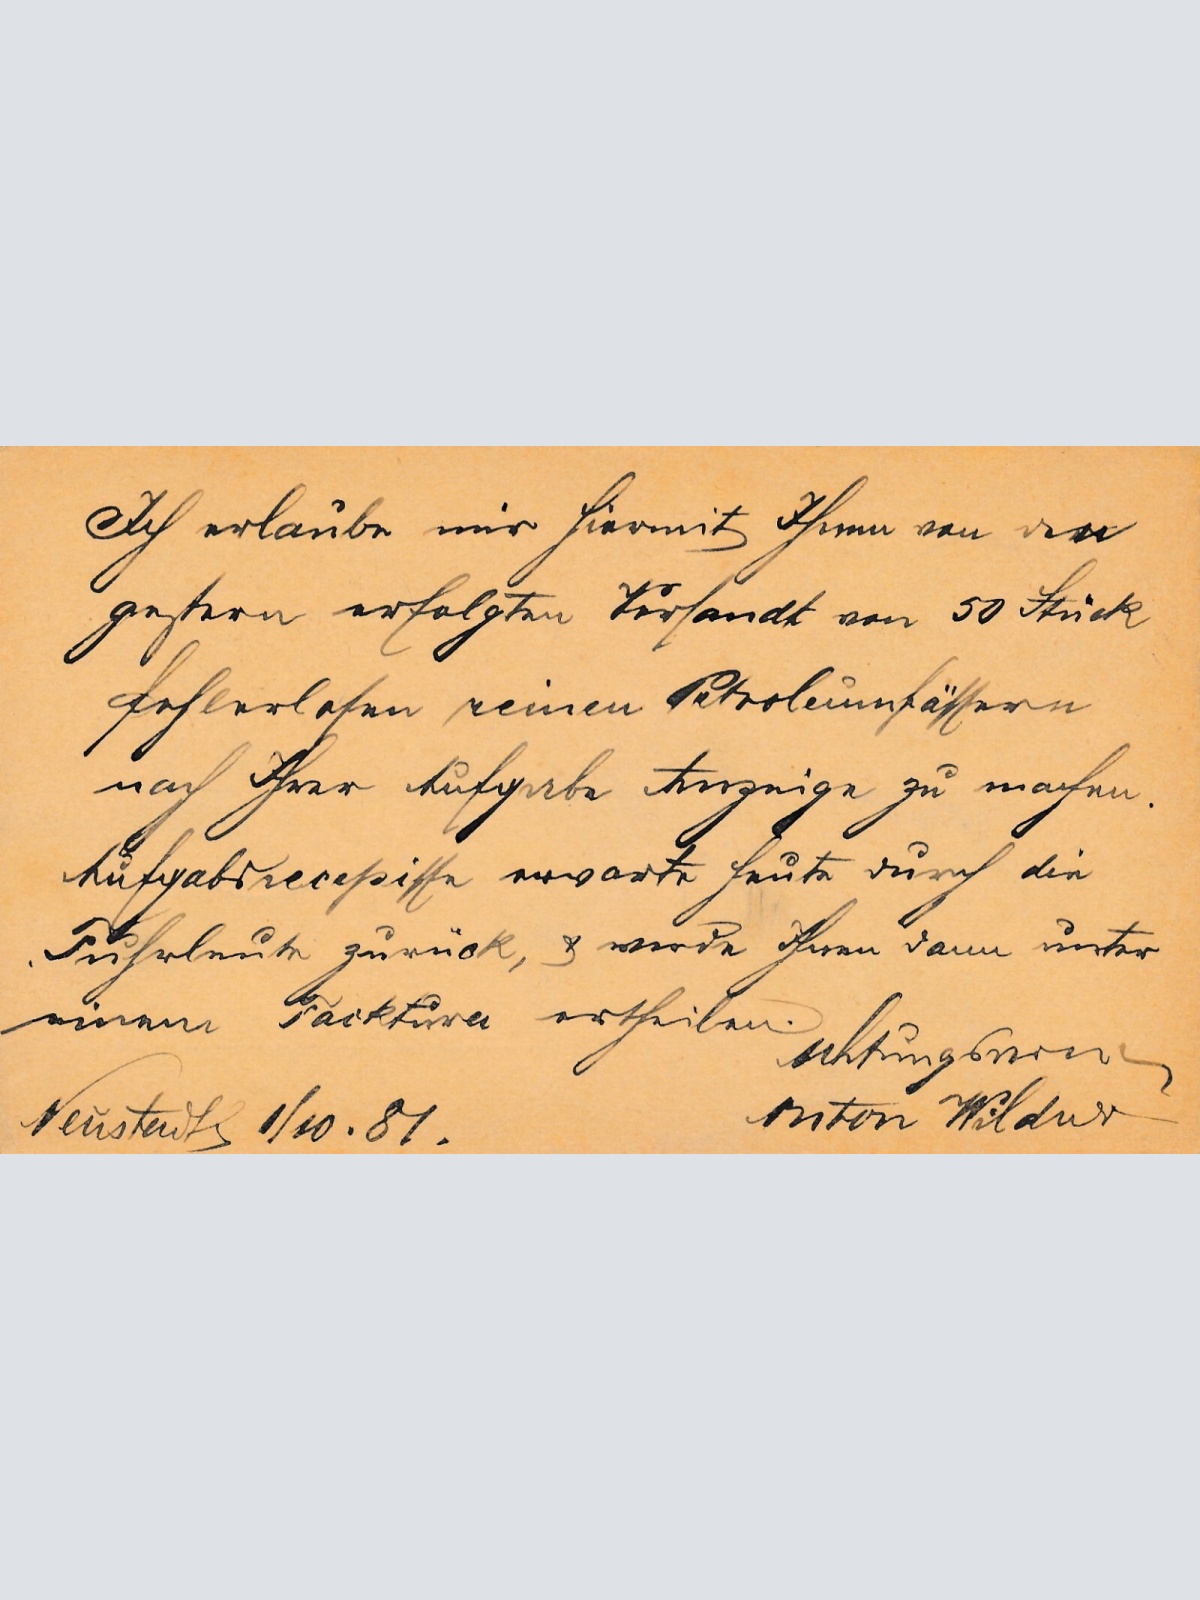 Ich erlaube mir hiermit Ihnen von den
gestern erfolgten Versandt von 50 Stück
fehlerlosen reinen Petroleumfässern
nach Ihrer Aufgabe Anzeige zu machen.
Aufgabsrecepisse erwarte heute durch die
Fuhrleute zurück, & werde Ihnen dann unter
einem Facktura ertheilen.
Achtungsvoll
Neustadtl 1/10.81.
Anton Wildner